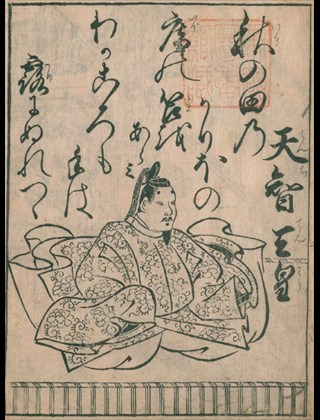 天智天皇
秋の田乃
かりほの
庵の苫越
あらミ
わかころも
手は
露にぬれつゝ